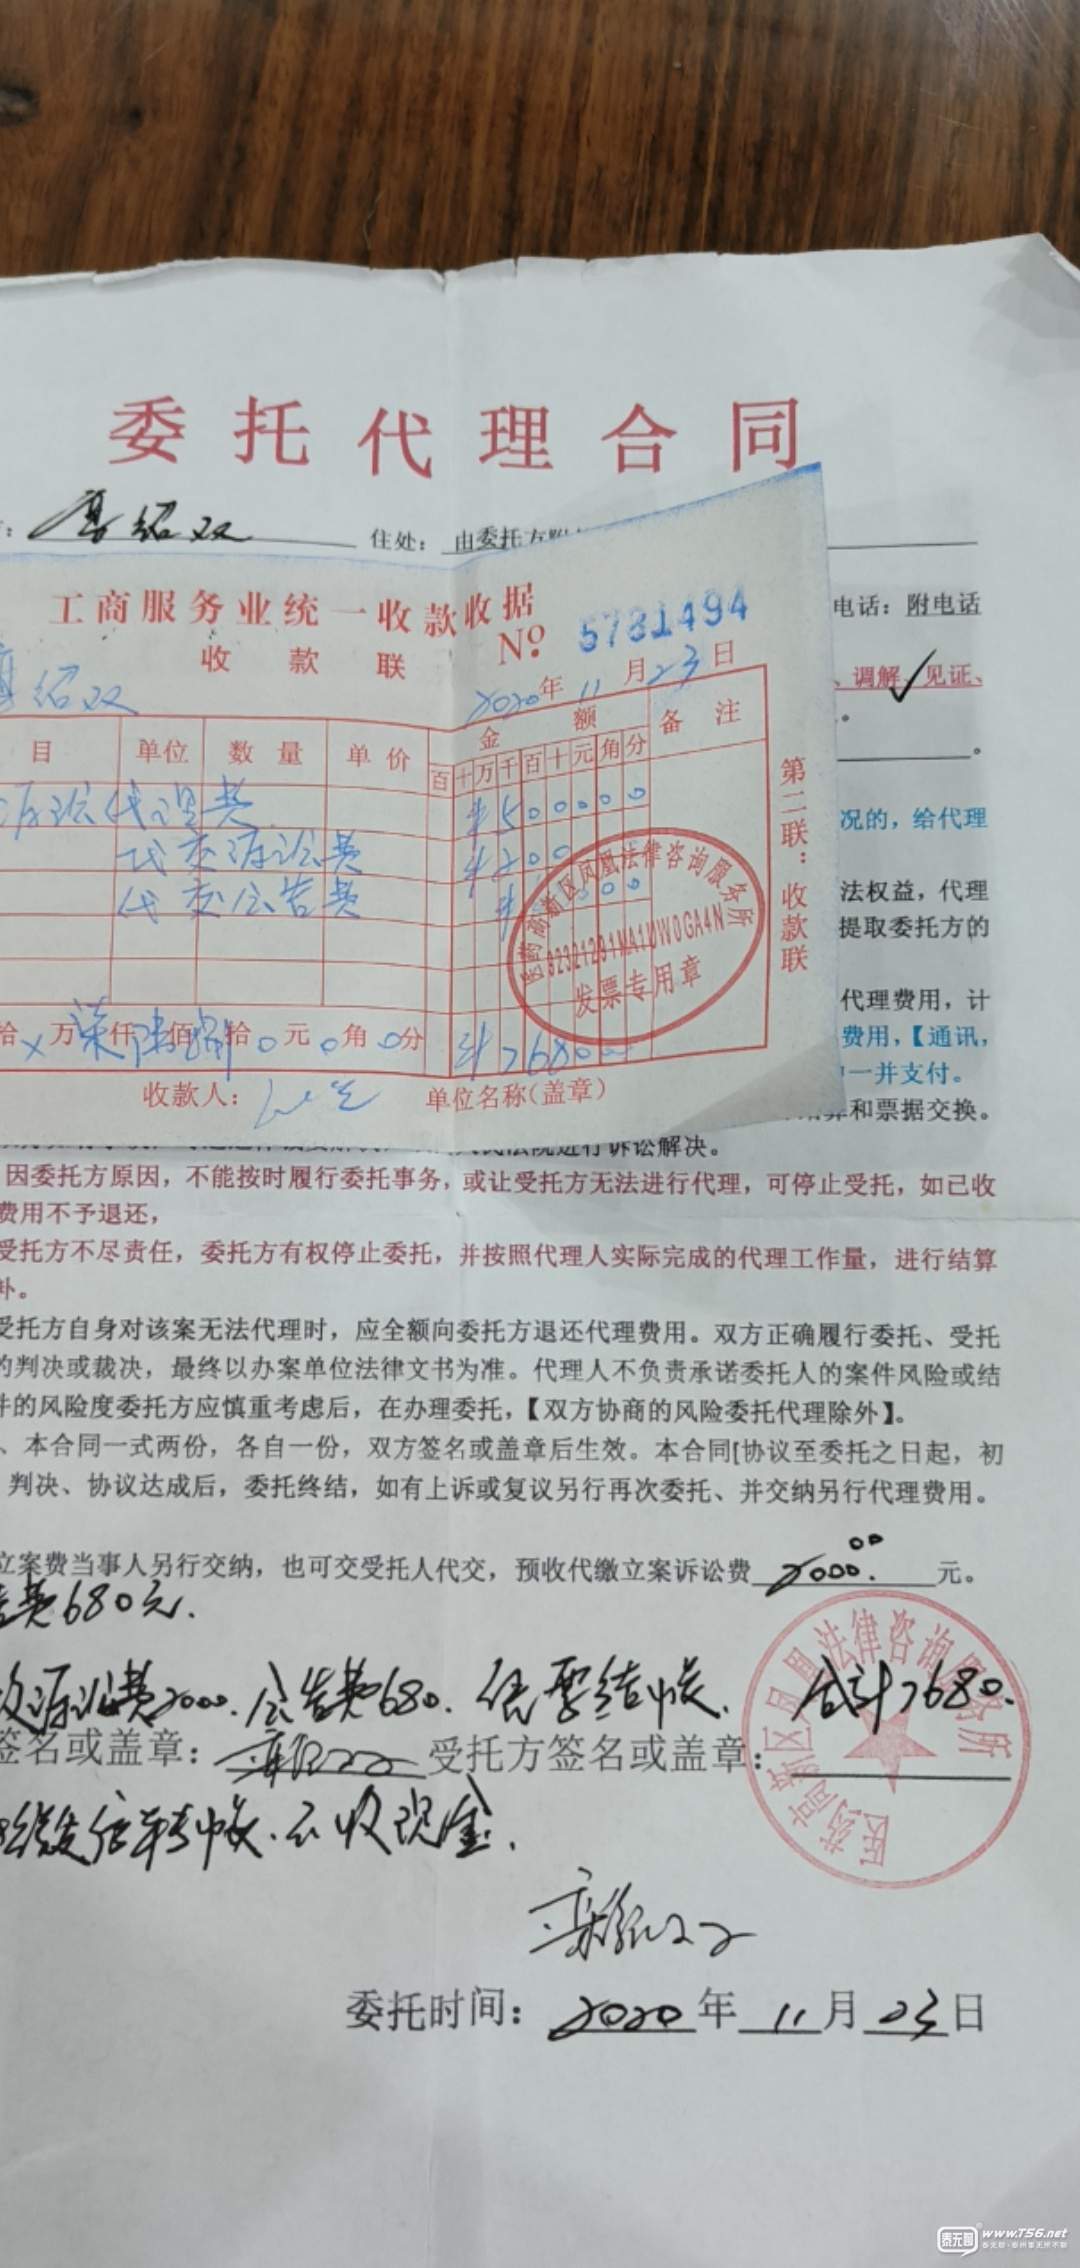 委托代理合同
住处：由委托方
工商服务业统一收款收据
收款联
No. 5781494
绍双
2020年11月23日
电话：附电话
、调解、见证、
目 单位 数量 单价 金额 备注
百十万千百十元角分
诉讼代理费 ¥500000
代交诉讼费
代交公告费
况的，给代理
法权益，代理
提取委托方的
代理费用，计
费用，【通讯，
一并支付。
和票据交换。
第二联：收款联
医药高新区凤凰法律咨询服务所
92321291MA1UW0GA4N
发票专用章
拾 万 仟 佰 拾 元 角 分 ¥7680
收款人：
单位名称（盖章）
民法院进行诉讼解决。
因委托方原因，不能按时履行委托事务，或让受托方无法进行代理，可停止受托，如已收
费用不予退还，
受托方不尽责任，委托方有权停止委托，并按照代理人实际完成的代理工作量，进行结算
补。
受托方自身对该案无法代理时，应全额向委托方退还代理费用。双方正确履行委托、受托
的判决或裁决，最终以办案单位法律文书为准。代理人不负责承诺委托人的案件风险或结
件的风险度委托方应慎重考虑后，在办理委托，【双方协商的风险委托代理除外】。
、本合同一式两份，各自一份，双方签名或盖章后生效。本合同[协议至委托之日起，初
判决、协议达成后，委托终结，如有上诉或复议另行再次委托、并交纳另行代理费用。
立案费当事人另行交纳，也可交受托人代交，预收代缴立案诉讼费 2000.00 元。
告费680元.
诉讼费2000.公告费680.凭票结帐. 合计7680.
签名或盖章： 受托方签名或盖章：
医药高新区凤凰法律咨询服务所
微信转帐.不收现金.
委托时间：2020年11月23日
泰无聊 www.T56.net